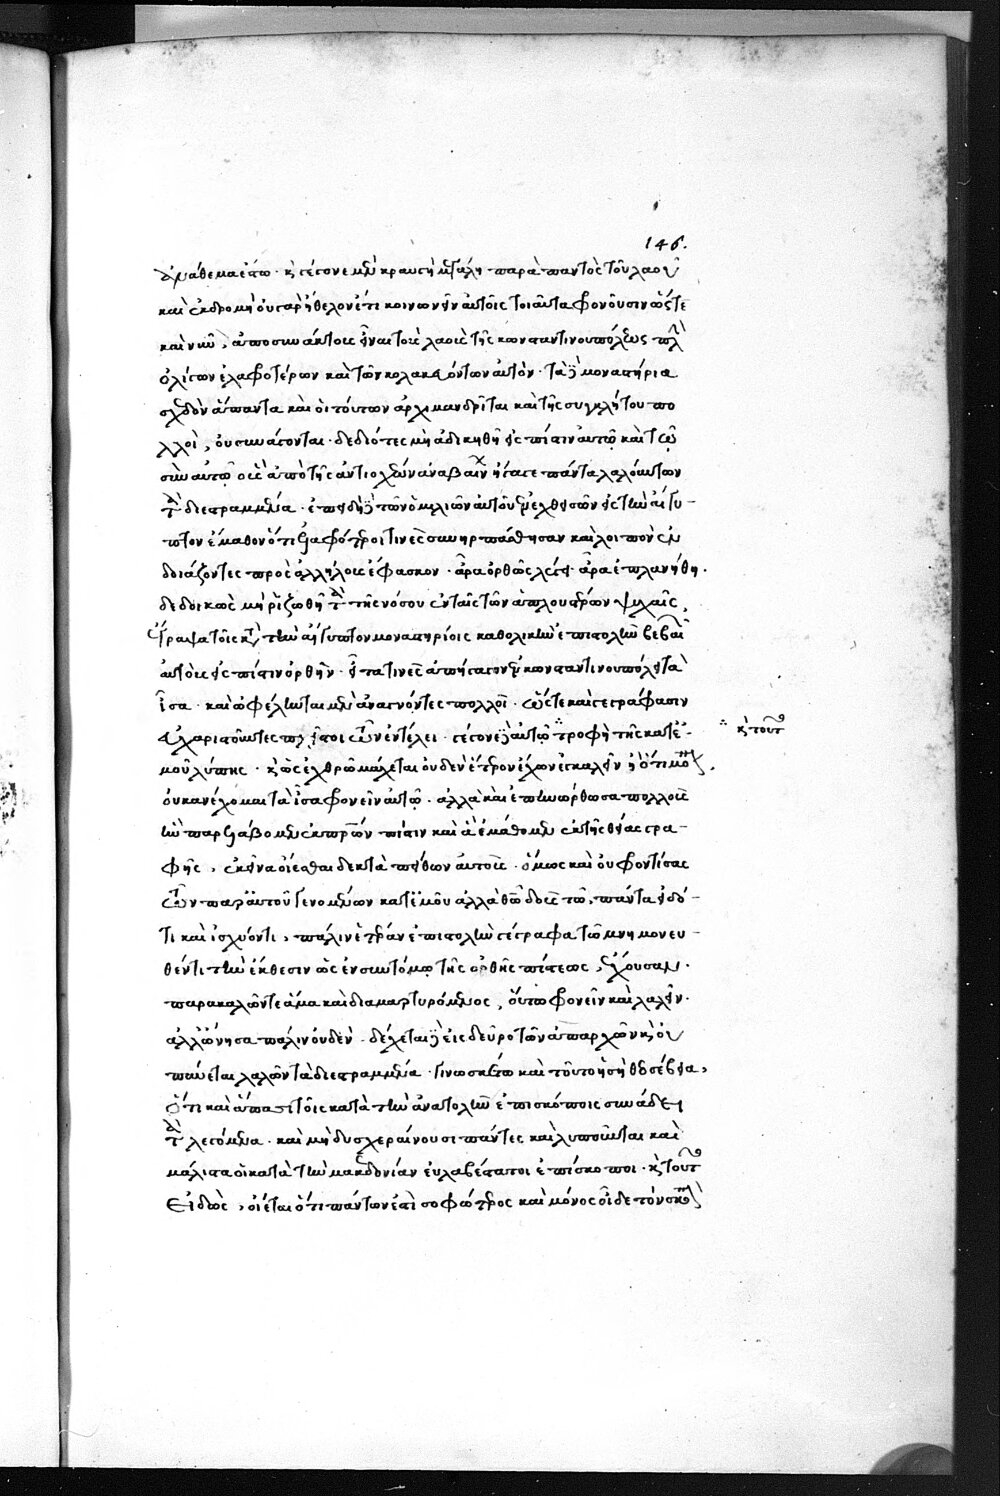 146.
ἀνάθεμα ἔστω · κ̀ γέγονε μὲν κραυγὴ μεγάλη παρὰ παντὸς τοῦ λαοῦ
καὶ ἐκδρομή οὐ γὰρ ἤθελον ἔτι κοινωνεῖν αὐτοῖς τοιαῦτα φρονοῦσιν ὥστε
καὶ νῦν, ἀποσυνάκτους εἶναι τοὺς λαοὺς τῆς κωνσταντινουπόλεως πλὴ
ὀλίγων ἐλαφροτέρων καὶ τῶν κολακευόντων αὐτόν · τὰ δὲ μοναστήρια
σχεδὸν ἅπαντα καὶ οἱ τούτων ἀρχιμανδρῖται καὶ τῆς συγκλήτου πο
λλοὶ, οὐ συνάγονται · δεδιότες μὴ ἀδικηθῶ εἰς πίστιν αὐτοῦ καὶ τῶ
σὺν αὐτῷ οὓς ἀπὸ τῆς ἀντιοχείων ἀναβαίν ἤγαγε πάντα λαλούντων
τ διεστραμμένα · ἐπειδὴ δὲ τῶν ὁμιλιῶν αὐτοῦ ἐνεχθεισῶν εἰς τὴν αἴγυ-
πτον ἔμαθον ὅτι ἐλαφρότεροί τινες συνηρπάσθησαν καὶ λοιπὸν ἐν
δοιάζοντες πρὸς ἀλλήλους ἔφασκον · ἆρα ὀρθῶς λέγει · ἆρα ἐπλανήθη ·
δεδοικὼς μὴ ῥιζωθῆ τ τῆς νόσου ἐν ταῖς τῶν ἁπλουστέρων ψυχαῖς,
ἔγραψα τοῖς κτ τὴν αἴγυπτον μοναστηρίοις καθολικὴν ἐπιστολὴν βεβαι
αὐτοὺς εἰς πίστιν ὀρθὴν · εἶτά τινες ἀπήγαγον ἐν κωνσταντινουπόλει τὰ
ἴσα · καὶ ὠφέληνται μὲν ἀναγνόντες πολλοὶ · ὥστε καὶ γεγράφασιν
εὐχαριστοῦντες πλεῖστοι τῶν ἐν τέλει · γέγονε δὲ αὐτῷ ∴ τροφὴ τῆς κατ᾽ ἐ-
∴ κ̀ τοῦτ
μοῦ λύπης · κ̀ ὡς ἐχθρῷ μάχεται οὐδὲν ἕτερον ἔχων ἐγκαλεῖν ἢ ὅτι μ
οὐκ ἀνέχομαι τὰ ἴσα φρονεῖν αὐτῷ · ἀλλὰ καὶ ἐπηνώρθωσα πολλοὺς
ἣν παρελάβομεν ἐκ πρῶν πίστιν καὶ ἃ ἐμάθομεν ἐκ τῆς θείας γρα-
φῆς, ἐκεῖνα οἴεσθαι δεκτὰ πείθων αὐτούς · ὅμως καὶ οὐ φροντίσας
τῶν παρ᾽ αὐτοῦ γενομένων κατ᾽ ἐμοῦ ἀλλὰ θῶ δοὺς τῶ, πάντα εἰδό-
τι καὶ ἰσχύοντι, πάλιν ἑτέραν ἐπιστολὴν γέγραφα τῶ μνημονευ-
θέντι τὴν ἔκθεσιν ὡς ἐν συντόμῳ τῆς ὀρθῆς πίστεως, ἔχουσαν ·
παρακαλῶν τε ἅμα καὶ διαμαρτυρόμενος, οὕτω φρονεῖν καὶ λαλεῖν ·
ἀλλ᾽ ὤνησα πάλιν οὐδέν · δέχεται δὲ εἰς δεῦρο τῶν ἀπαρχῶν κ̀ οὐ
παύεται λαλῶν τὰ διεστραμμένα · γινωσκέτω καὶ τοῦτο ἡ σὴ θεοσέβεια,
ὅτι καὶ ἅπασι τοῖς κατὰ τὴν ἀνατολὴν ἐπισκόποις συνάδει
τ λεγόμενα · καὶ μὴν δυσχεραίνουσι πάντες καὶ λυποῦνται καὶ
μάλιστα οἱ κατὰ τὴν μακεδονίαν εὐλαβέστατοι ἐπίσκοποι · κ̀ τοῦτ
εἰδὼς, οἴεται ὅτι πάντων ἐστὶ σοφώτερος καὶ μόνος οἶδε τὸν σκοπ